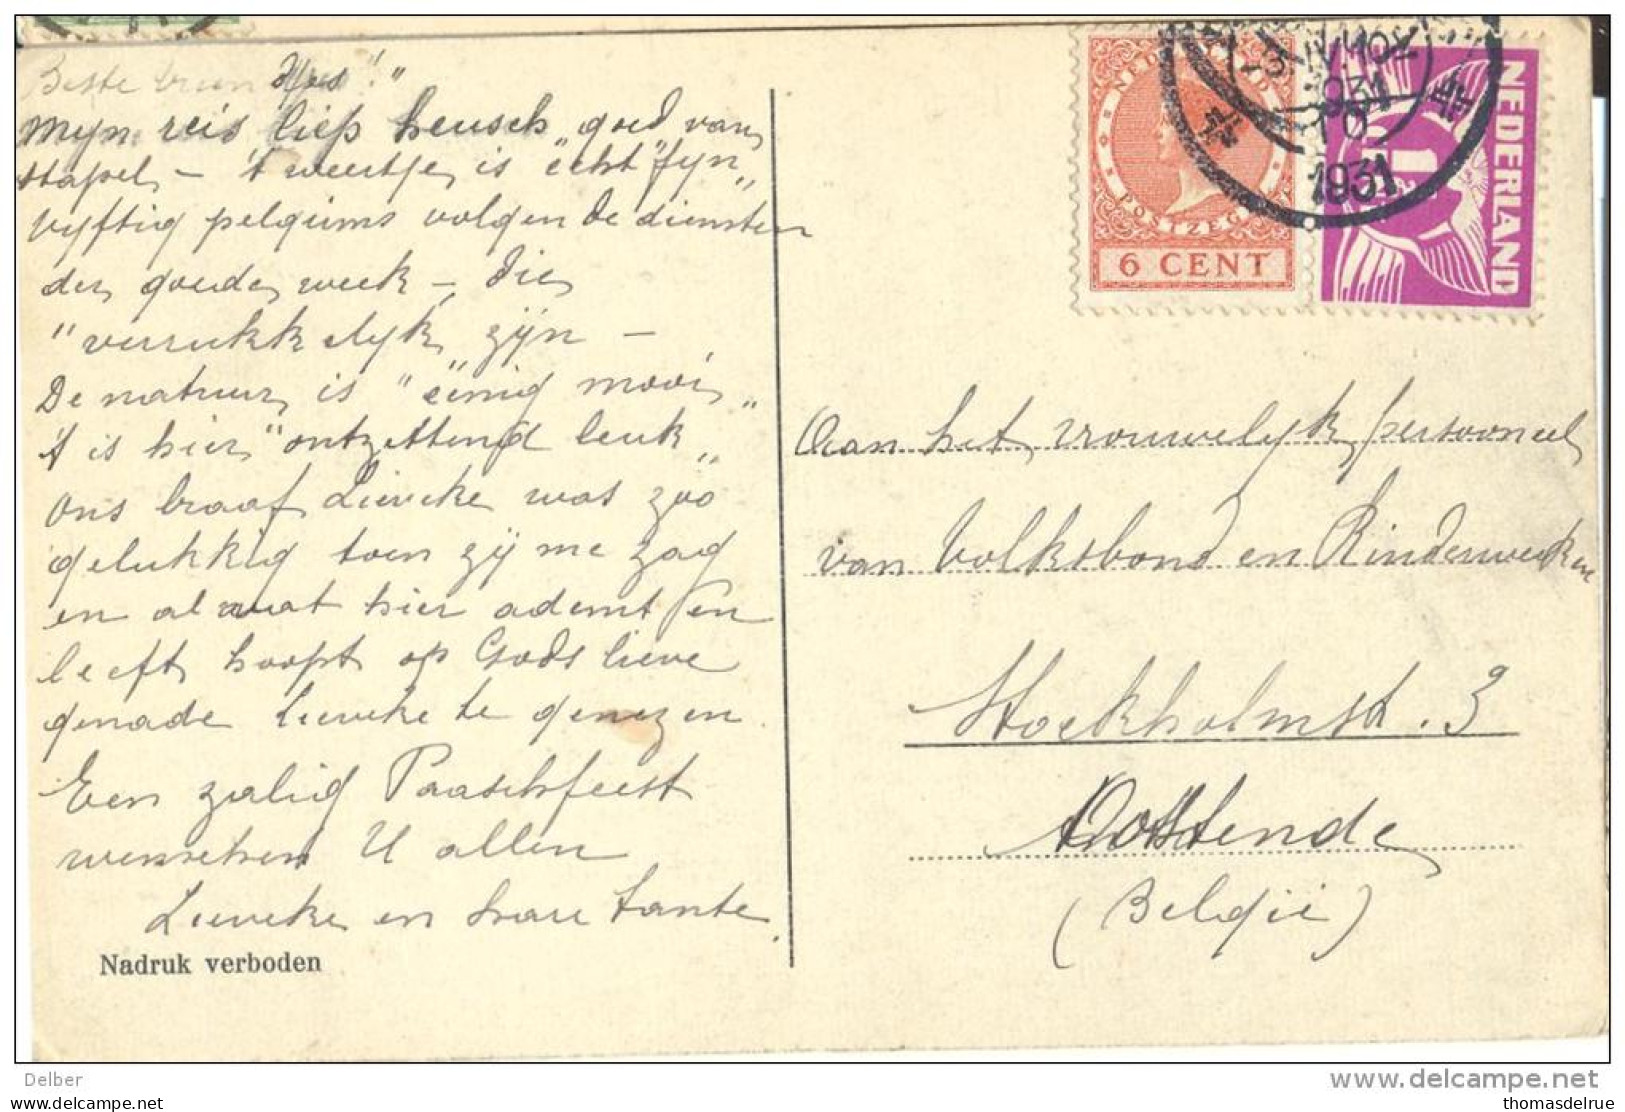 Beste
Myn reis liep heusch "goed van
stapel, - 't weertje is "echt" fyn"
vyftig pelgrims volgen de diensten
der goede week - die
"verrukkelyk" zijn -
De natuur is "eënig mooi"
't is hier "ontzettend leuk"
ons braaf Lieveke was zoo
gelukkig toen zij me zag
en al wat hier ademt en
leeft hoopt op Gods lieve
genade Lieveke te genezen.
Een zalig Paaschfeest
wenschen U allen
Lieveke en hare tante.
Nadruk verboden
NEDERLAND
POSTZEGEL
6 CENT
NEDERLAND
1931
1931
Aan het vrouwelyk personeel
van Volksbond en Kinderwerken
Stockholmstr. 3
Oostende
(België)
Delber
www.delcampe.net
thomasdelrue